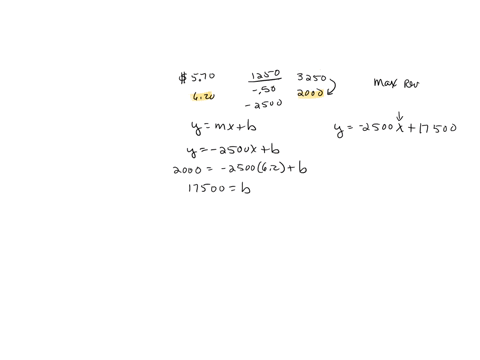 $5.70 1250 3250
6.20 -.50 2000
-2500
Max Rev
y = mx+b
y = -2500x + 17500
y = -2500x + b
2000 = -2500(6.2) + b
17500 = b